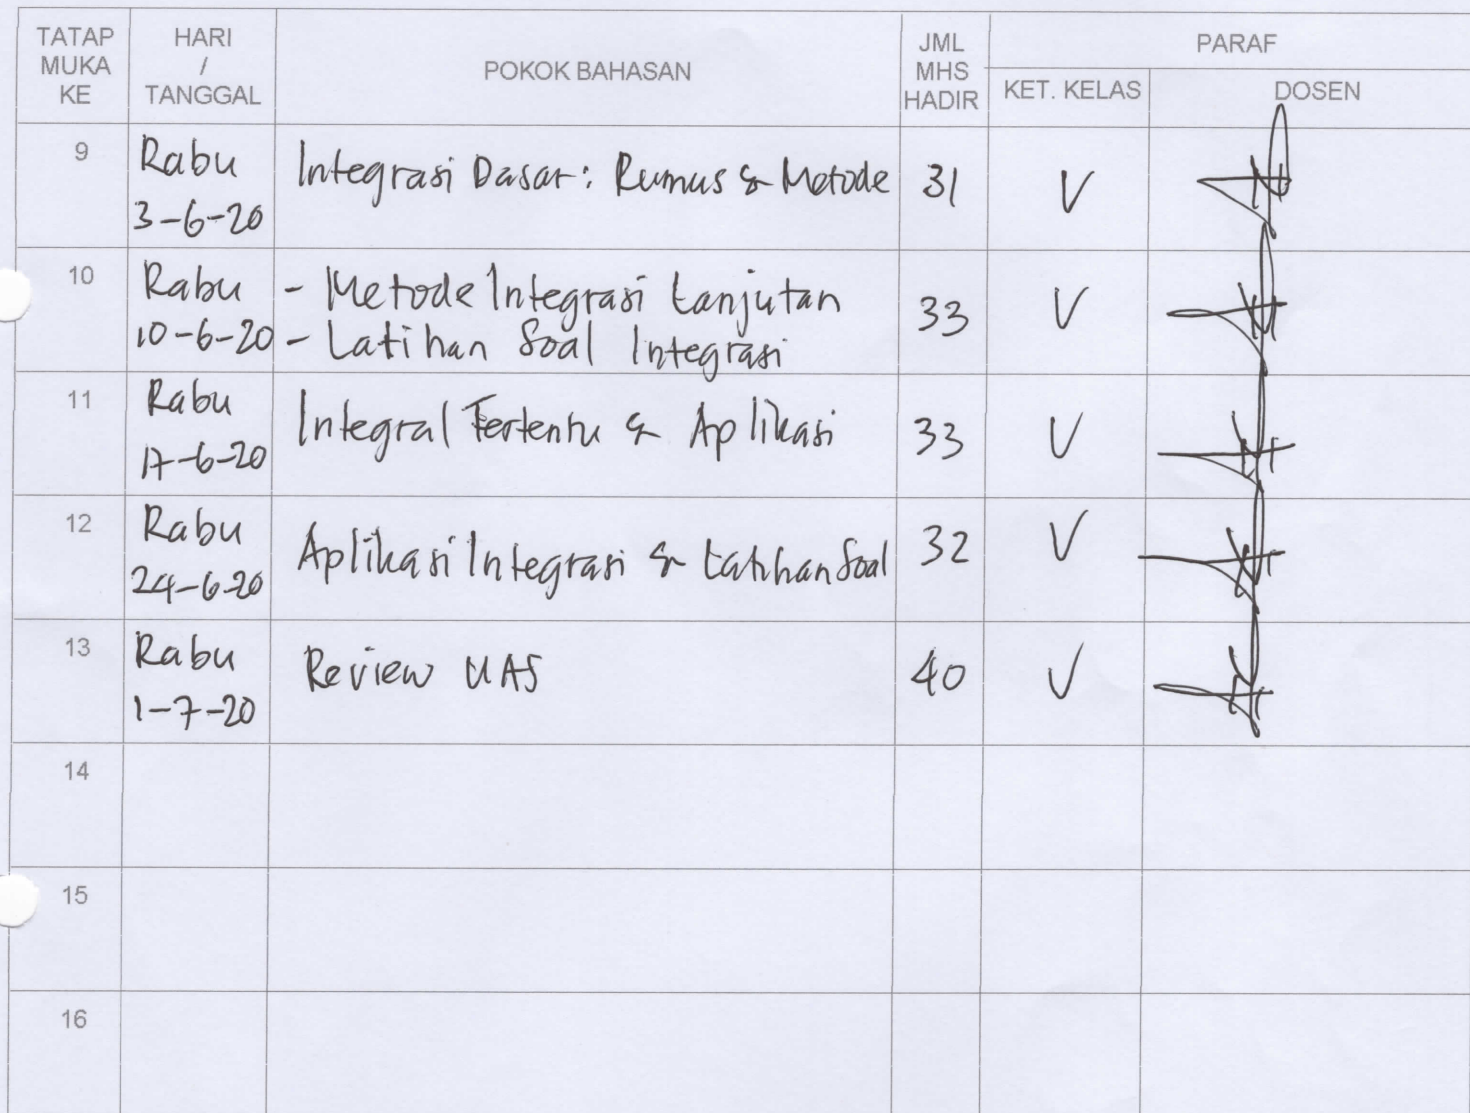 TATAP MUKA KE HARI / TANGGAL POKOK BAHASAN JML MHS HADIR PARAF
KET. KELAS DOSEN
9 Rabu 3-6-20 Integrasi Dasar: Rumus & Metode 31 V
10 Rabu 10-6-20 - Metode Integrasi Lanjutan 33 V
- Latihan Soal Integrasi
11 Rabu 17-6-20 Integral Tertentu & Aplikasi 33 V
12 Rabu 24-6-20 Aplikasi Integrasi & Latihan Soal 32 V
13 Rabu 1-7-20 Review UAS 40 V
14
15
16